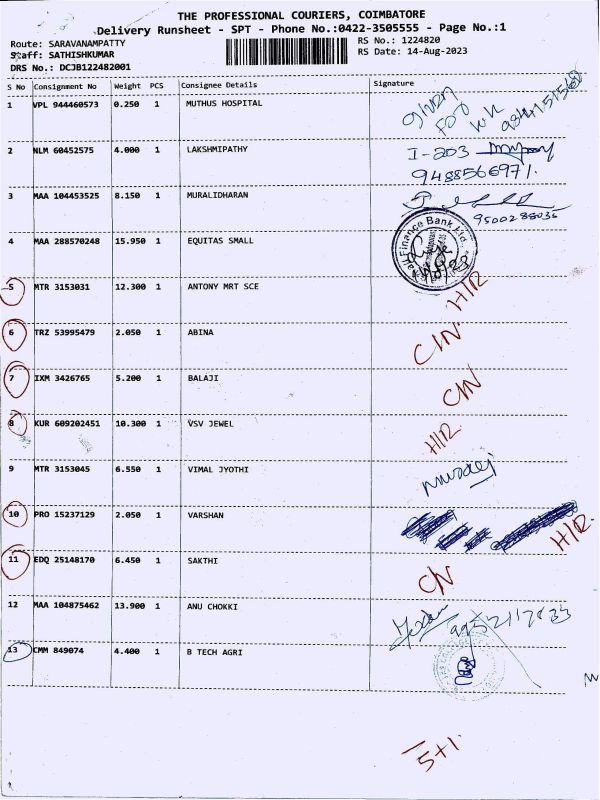 THE PROFESSIONAL COURIERS, COIMBATORE
Delivery Runsheet - SPT - Phone No.:0422-3505555 - Page No.:1
Route: SARAVANAMPATTY
RS No.: 1224820
Staff: SATHISHKUMAR
RS Date: 14-Aug-2023
DRS No.: DCJB122482001
S No Consignment No Weight PCS Consignee Details Signature
1 VPL 944460573 0.250 1 MUTHUS HOSPITAL
given
For
2 NLM 60452575 4.000 1 LAKSHMIPATHY I-203
9488566971.
3 MAA 104453525 8.150 1 MURALIDHARAN
9500288035
4 MAA 288570248 15.950 1 EQUITAS SMALL
Finance Bank Ltd.
5 MTR 3153031 12.300 1 ANTONY MRT SCE H/R
6 TRZ 53995479 2.050 1 ABINA C/N
7 IXM 3426765 5.200 1 BALAJI C/N
8 KUR 609202451 10.300 1 VSV JEWEL H/R
9 MTR 3153045 6.550 1 VIMAL JYOTHI
10 PRO 15237129 2.050 1 VARSHAN H/R
11 EDQ 25148170 6.450 1 SAKTHI C/N
12 MAA 104875462 13.900 1 ANU CHOKKI
13 CMM 849074 4.400 1 B TECH AGRI
5+1